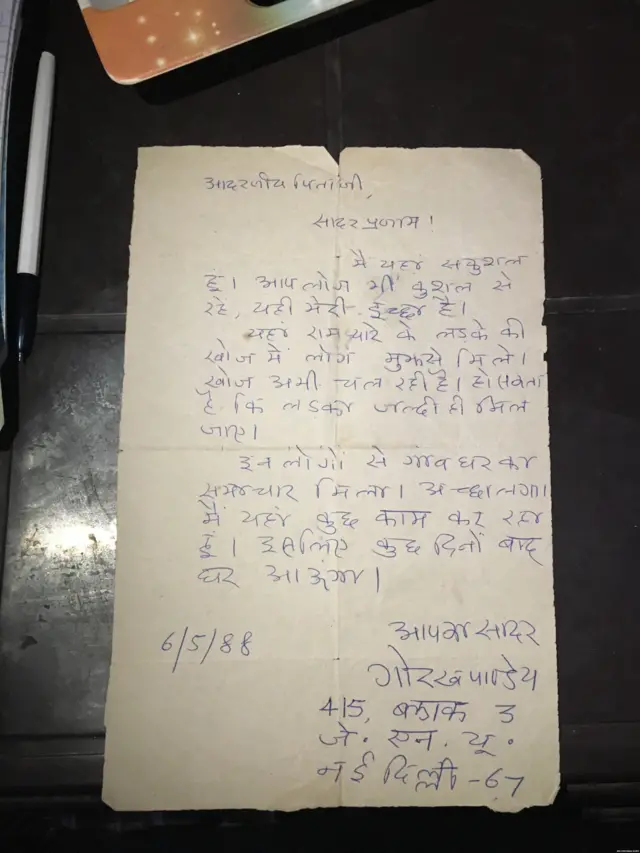 आदरणीय पिताजी,
सादर प्रणाम !
मैं यहां सकुशल
हूं। आप लोग भी कुशल से
रहें, यही मेरी इच्छा है।
यहां रामप्यारे के लड़के की
खोज में लोग मुझसे मिले।
खोज अभी चल रही है। हो सकता
है कि लड़का जल्दी ही मिल
जाए।
इन लोगों से गांव घर का
समाचार मिला। अच्छा लगा।
मैं यहां कुछ काम कर रहा
हूं। इसलिए कुछ दिनों बाद
घर आऊंगा।
आपका सादर
6/5/88
गोरख पाण्डेय
415, ब्लाक 3
जे. एन. यू.
नई दिल्ली -67